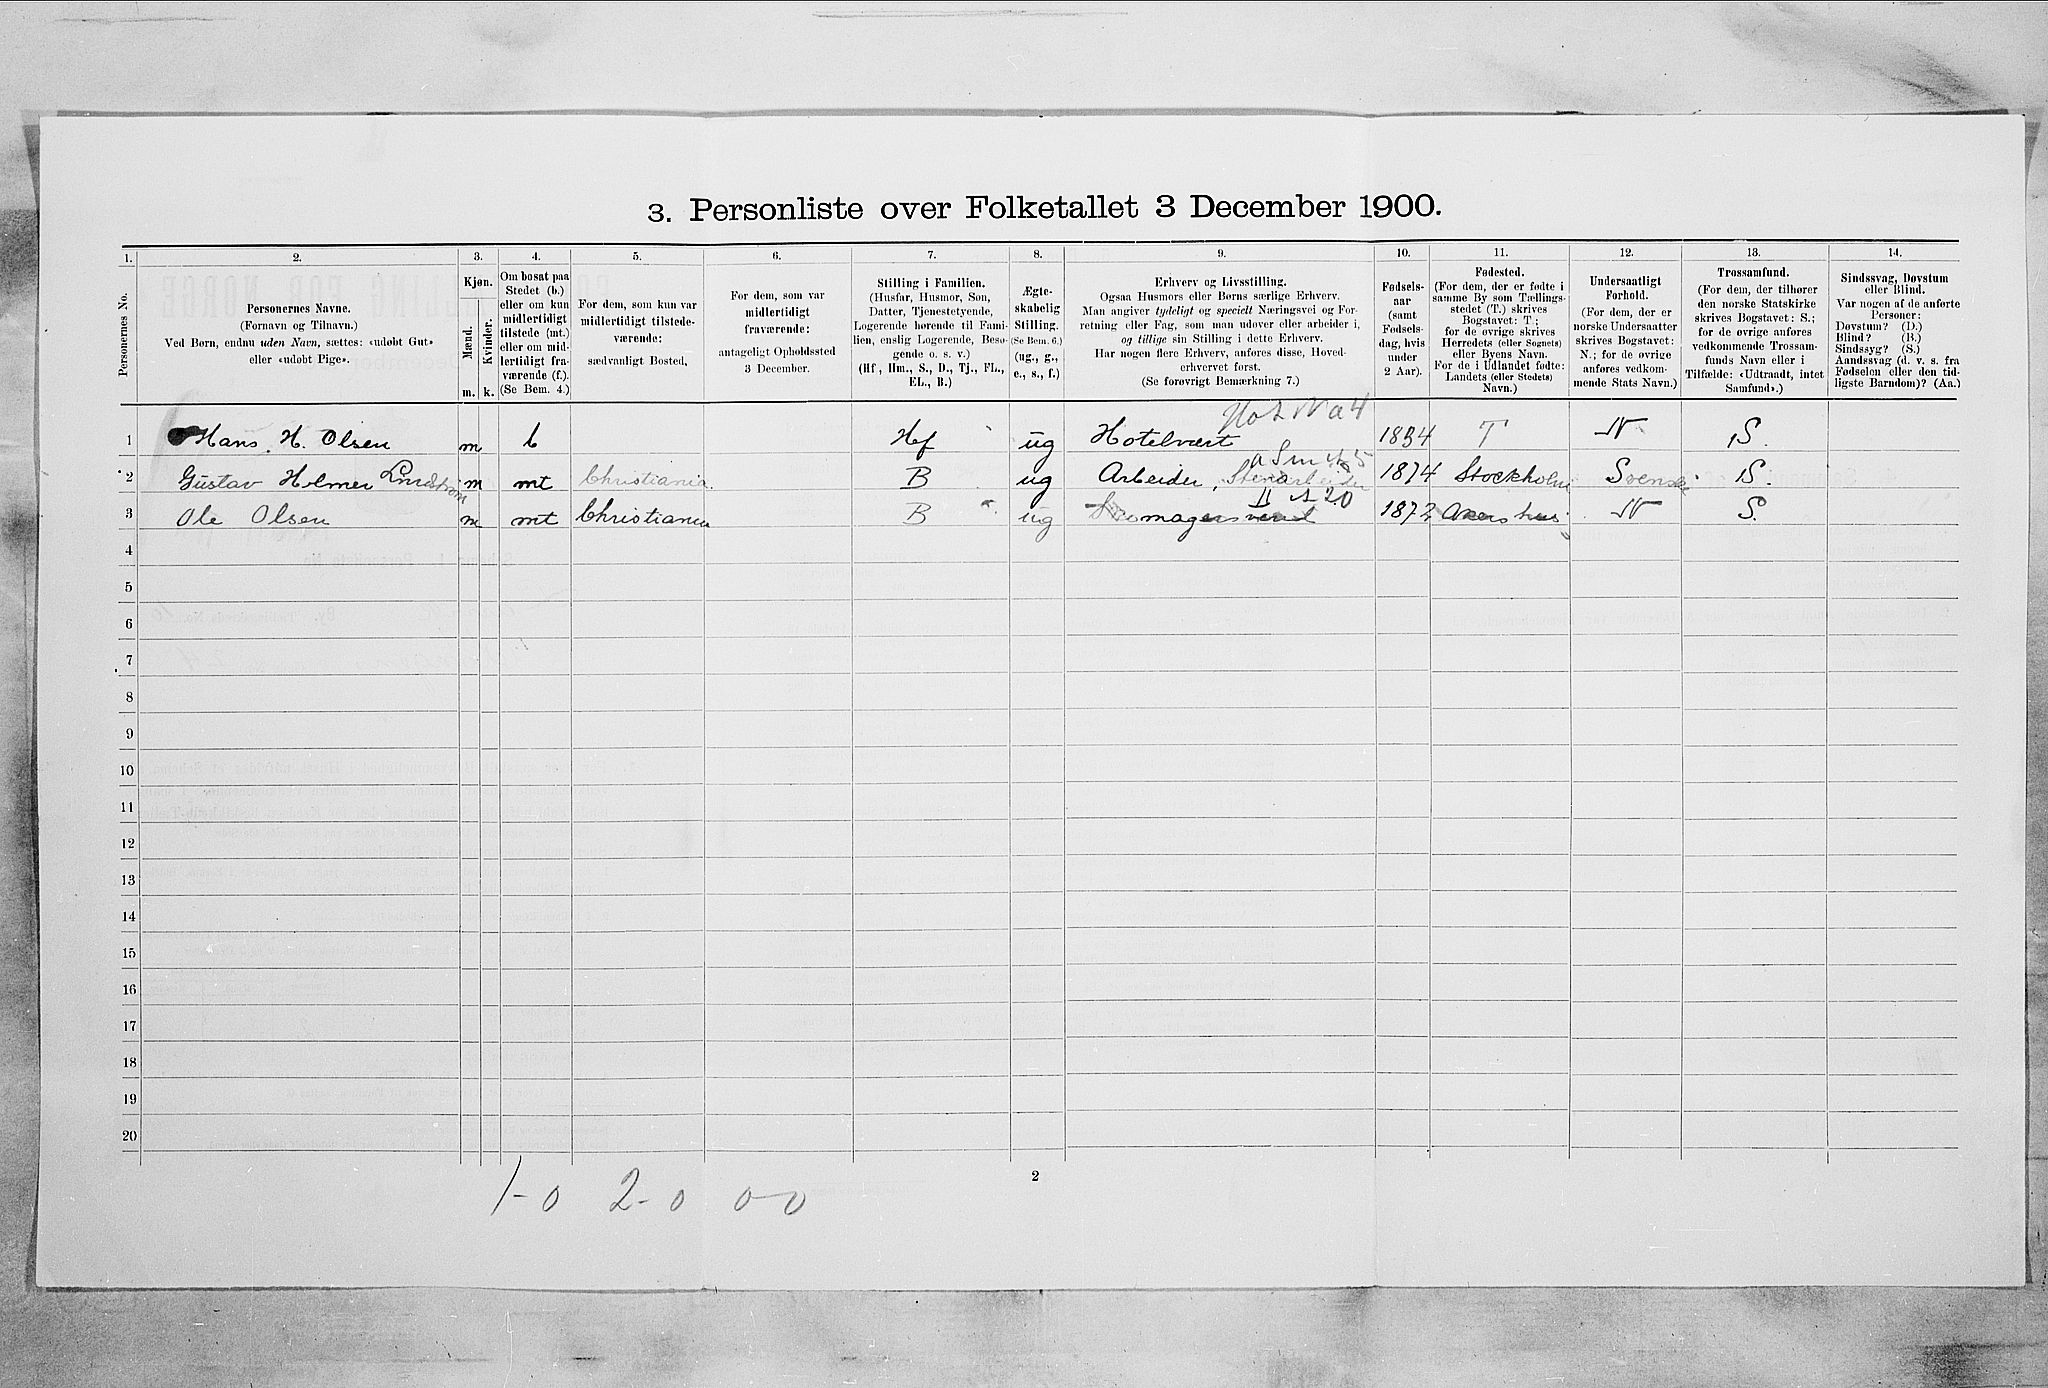 3. Personliste over Folketallet 3 December 1900.
1. 2. 3. 4. 5. 6. 7. 8. 9. 10. 11. 12. 13. 14.
Personernes No.
Personernes Navne.
(Fornavn og Tilnavn.)
Ved Børn, endnu uden Navn, sættes: «udøbt Gut»
eller «udøbt Pige».
Kjøn.
Mænd.
Kvinder.
m. k.
Om bosat paa
Stedet (b.)
eller om kun
midlertidigt
tilstede (mt.)
eller om mid-
lertidigt fra-
værende (f.).
(Se Bem. 4.)
For dem, som kun var
midlertidigt tilstede-
værende:
sædvanligt Bosted.
For dem, som var
midlertidigt
fraværende:
antageligt Opholdssted
3 December.
Stilling i Familien.
(Husfar, Husmor, Søn,
Datter, Tjenestetyende,
Logerende hørende til Fami-
lien, enslig Logerende, Besø-
gende o. s. v.)
(Hf, Hm., S., D., Tj., FL.,
EL., B.)
Ægte-
skabelig
Stilling.
(Se Bem. 6.)
(ug., g.,
e., s., f.)
Erhverv og Livsstilling.
Ogsaa Husmors eller Børns særlige Erhverv.
Man angiver tydeligt og specielt Næringsvei og For-
retning eller Fag, som man udøver eller arbeider i,
og tillige sin Stilling i dette Erhverv.
Har nogen flere Erhverv, anføres disse, Hoved-
erhvervet først.
(Se forøvrigt Bemærkning 7.)
Fødsels-
aar
(samt
Fødsels-
dag, hvis
under
2 Aar).
Fødested.
(For dem, der er fødte i
samme By som Tællings-
stedet (T.) skrives
Bogstavet: T.;
for de øvrige skrives
Herredets (eller Sognets)
eller Byens Navn.
For de i Udlandet fødte:
Landets (eller Stedets)
Navn.)
Undersaatligt
Forhold.
(For dem, der er
norske Undersaatter
skrives Bogstavet:
N.; for de øvrige
anføres vedkom-
mende Stats Navn.)
Trossamfund.
(For dem, der tilhører
den norske Statskirke
skrives Bogstavet: S.;
for de øvrige anføres
vedkommende Trossam-
funds Navn eller i
Tilfælde: «Udtraadt, intet
Samfund».)
Sindssvag, Døvstum
eller Blind.
Var nogen af de anførte
Personer:
Døvstum? (D.)
Blind? (B.)
Sindssyg? (S.)
Aandssvag (d. v. s. fra
Fødselen eller den tid-
ligste Barndom)? (Aa.)
1 Hans H. Olsen m b Hf ug Hotelvært 1834 T N S.
2 Gustav Helmer Lindström m mt Christiania B ug Arbeider, Stenarbeider 1874 Stockholm Svensk S.
3 Ole Olsen m mt Christiania B ug Skomagersvend 1872 Akershus N S.
4
5
6
7
8
9
10
11
12
13
14
15
16
17
18
19
20
1-0 2-0 0-0
2